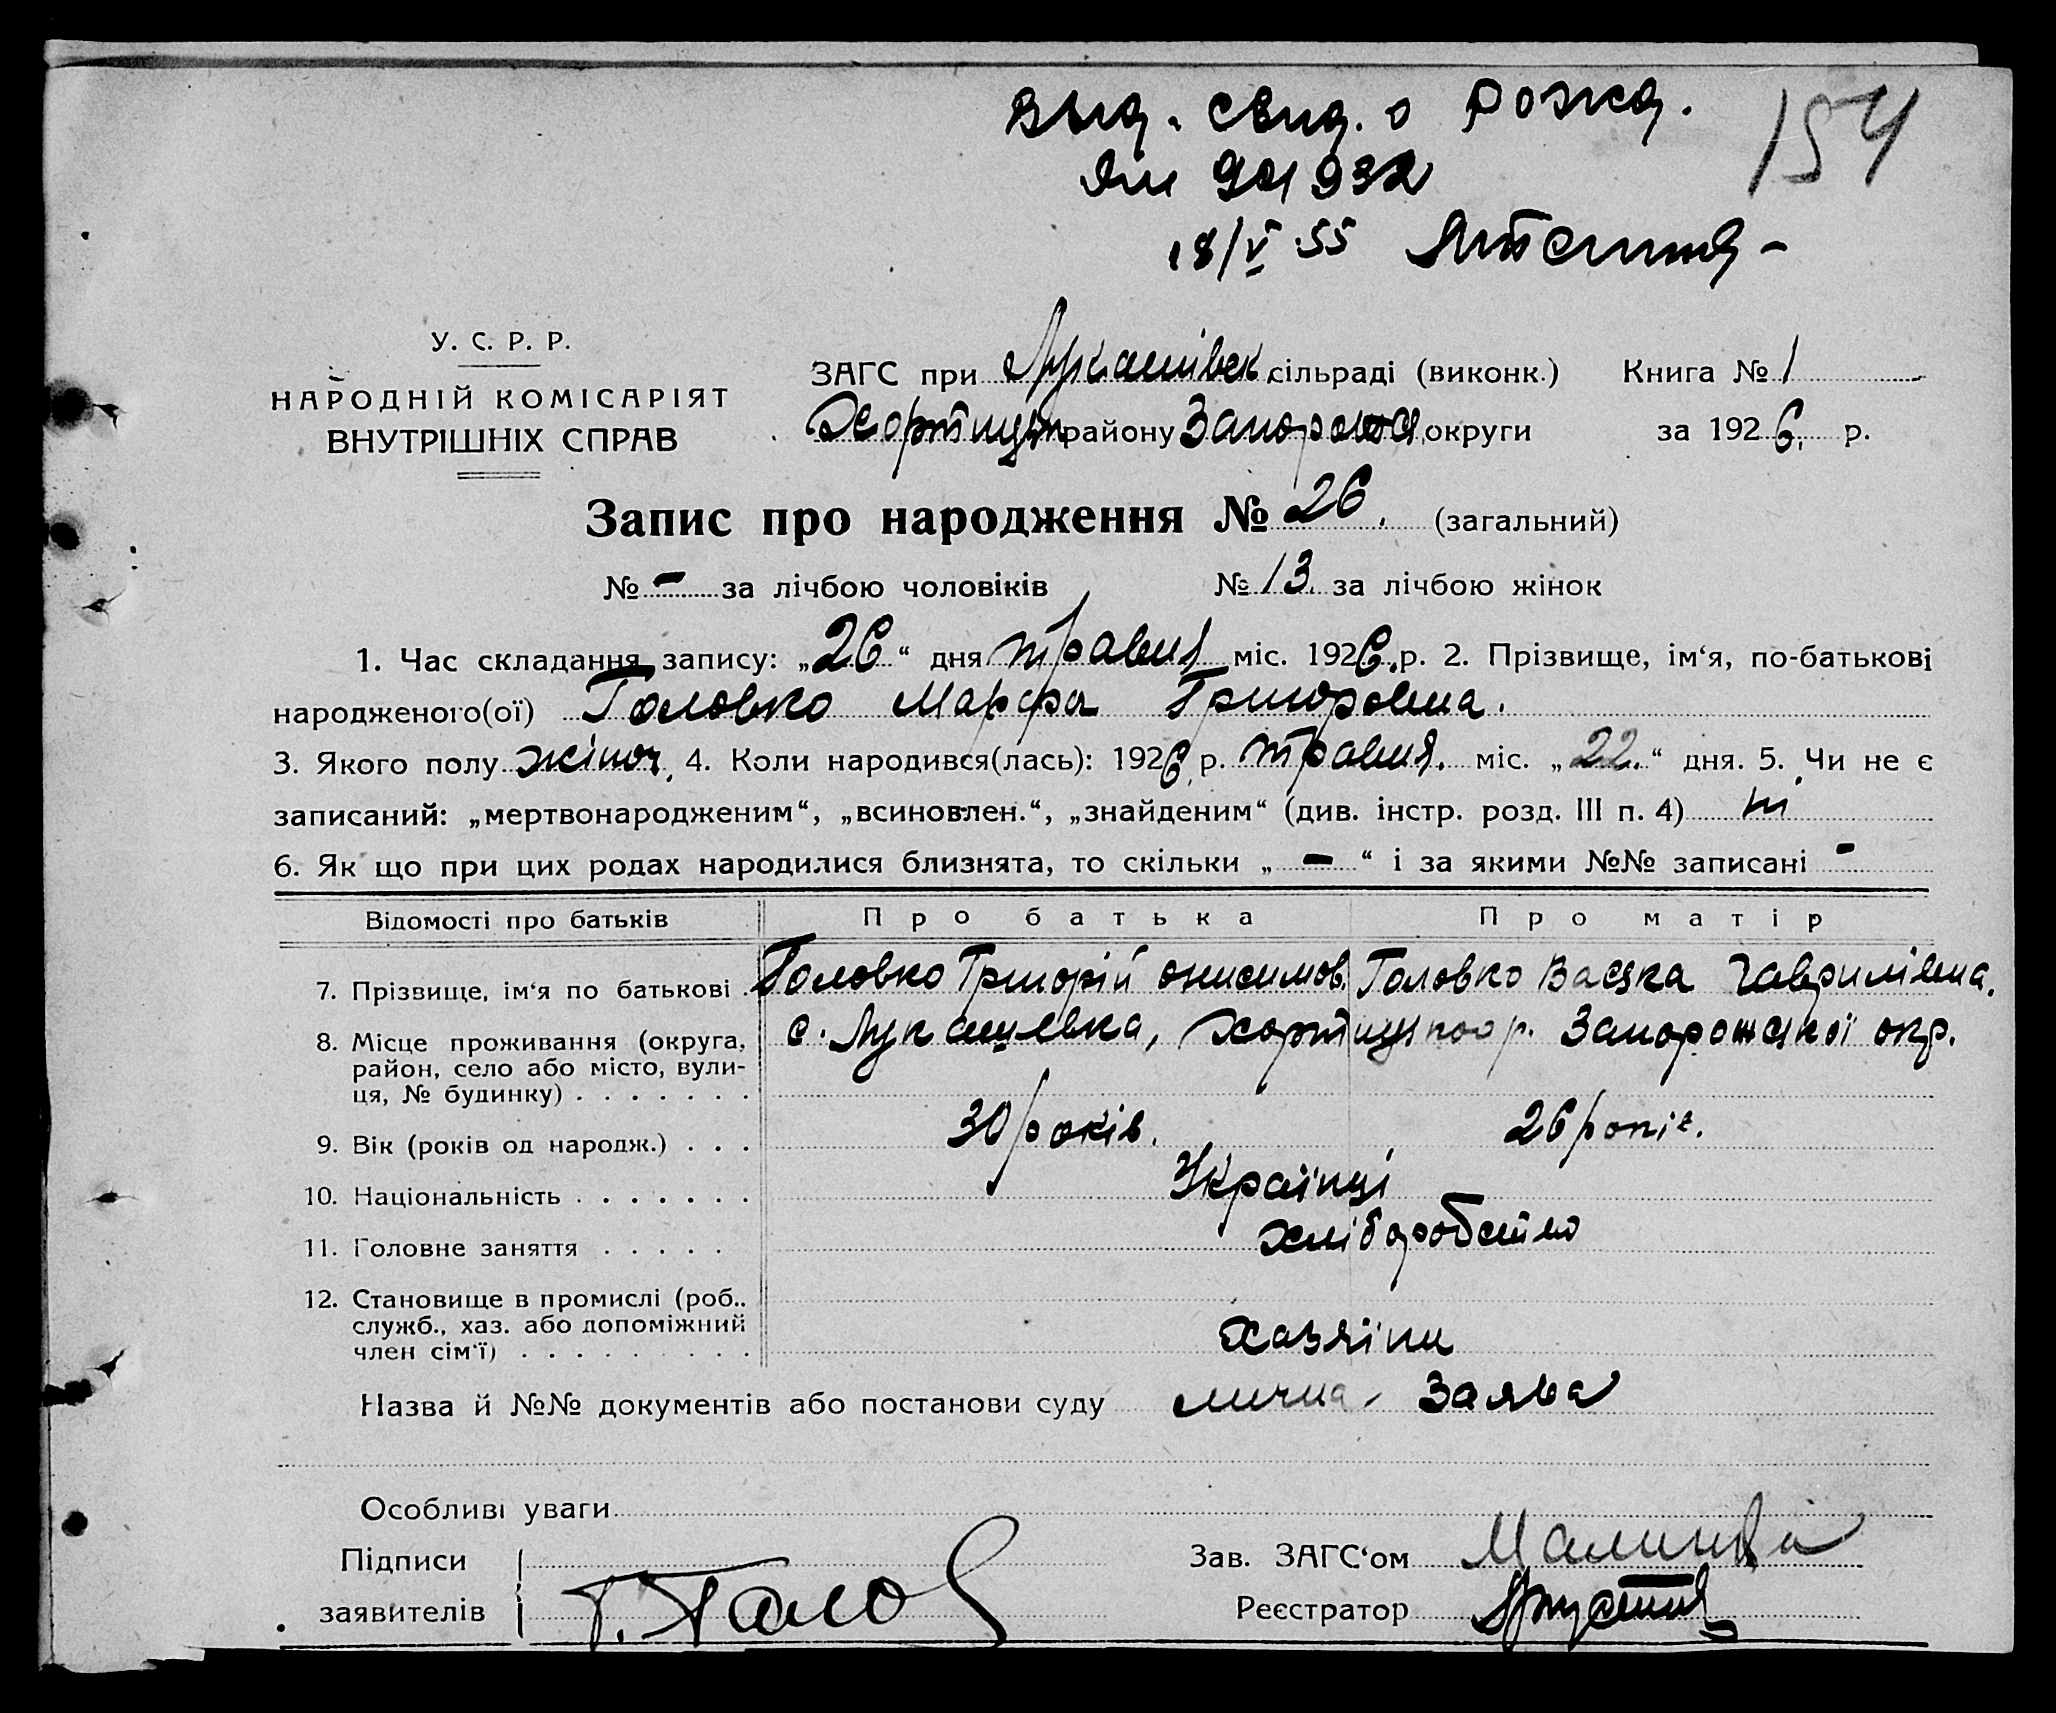 Выд. свид. о рожд.
154
ЯЛ
18/V 55
У. С. Р. Р.
НАРОДНІЙ КОМІСАРІЯТ
ВНУТРІШНІХ СПРАВ
ЗАГС при Лукашівск. сільраді (виконк.) Книга № 1
Хортицьк району округи за 1926. р.
Запис про народження № 26. (загальний)
№ - за лічбою чоловіків № 13. за лічбою жінок
1. Час складання запису: „26“ дня травня міс. 1926. р. 2. Прізвище, ім‘я, по-батькові
народженого(ої) Головко Марфа Григоровна.
3. Якого полу жіноч. 4. Коли народився(лась): 1926 р. травня. міс. „22.“ дня. 5. Чи не є
записаний: „мертвонародженим“, „всиновлен.“, „знайденим“ (див. інстр. розд. III п. 4) ні
6. Як що при цих родах народилися близнята, то скільки „ - “ і за якими №№ записані -
Відомості про батьків Про батька Про матір
7. Прізвище, ім‘я по батькові . Головко Григорій Онисимов. Головко Васька Гаврилівна.
8. Місце проживання (округа, с. Лукашевка, Хортицького р. Запорожської окр.
район, село або місто, вули-
ця, № будинку) . . . . . . .
9. Вік (років од народж.) . . . 30 років. 26 років.
10. Національність . . . . . . . Українці
11. Головне заняття . . . . . хліборобство
12. Становище в промислі (роб..
служб., хаз. або допоміжний
член сім‘ї) . . . . . . . . . хазяїни
Назва й №№ документів або постанови суду лична заява
Особливі уваги
Підписи Зав. ЗАГС‘ом
заявителів Г. Голов Реєстратор